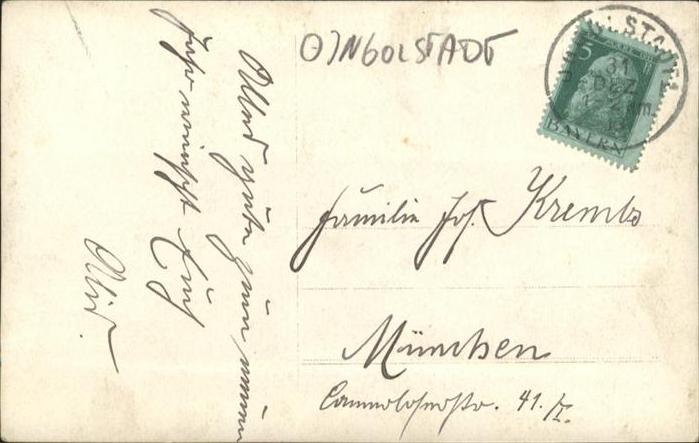 Alles gute zum neuen
Jahr wünscht Euch
OINGOLSTADT
5
31
DEZ
BAYERN
Familie Jos. Krembs
München
41./II.